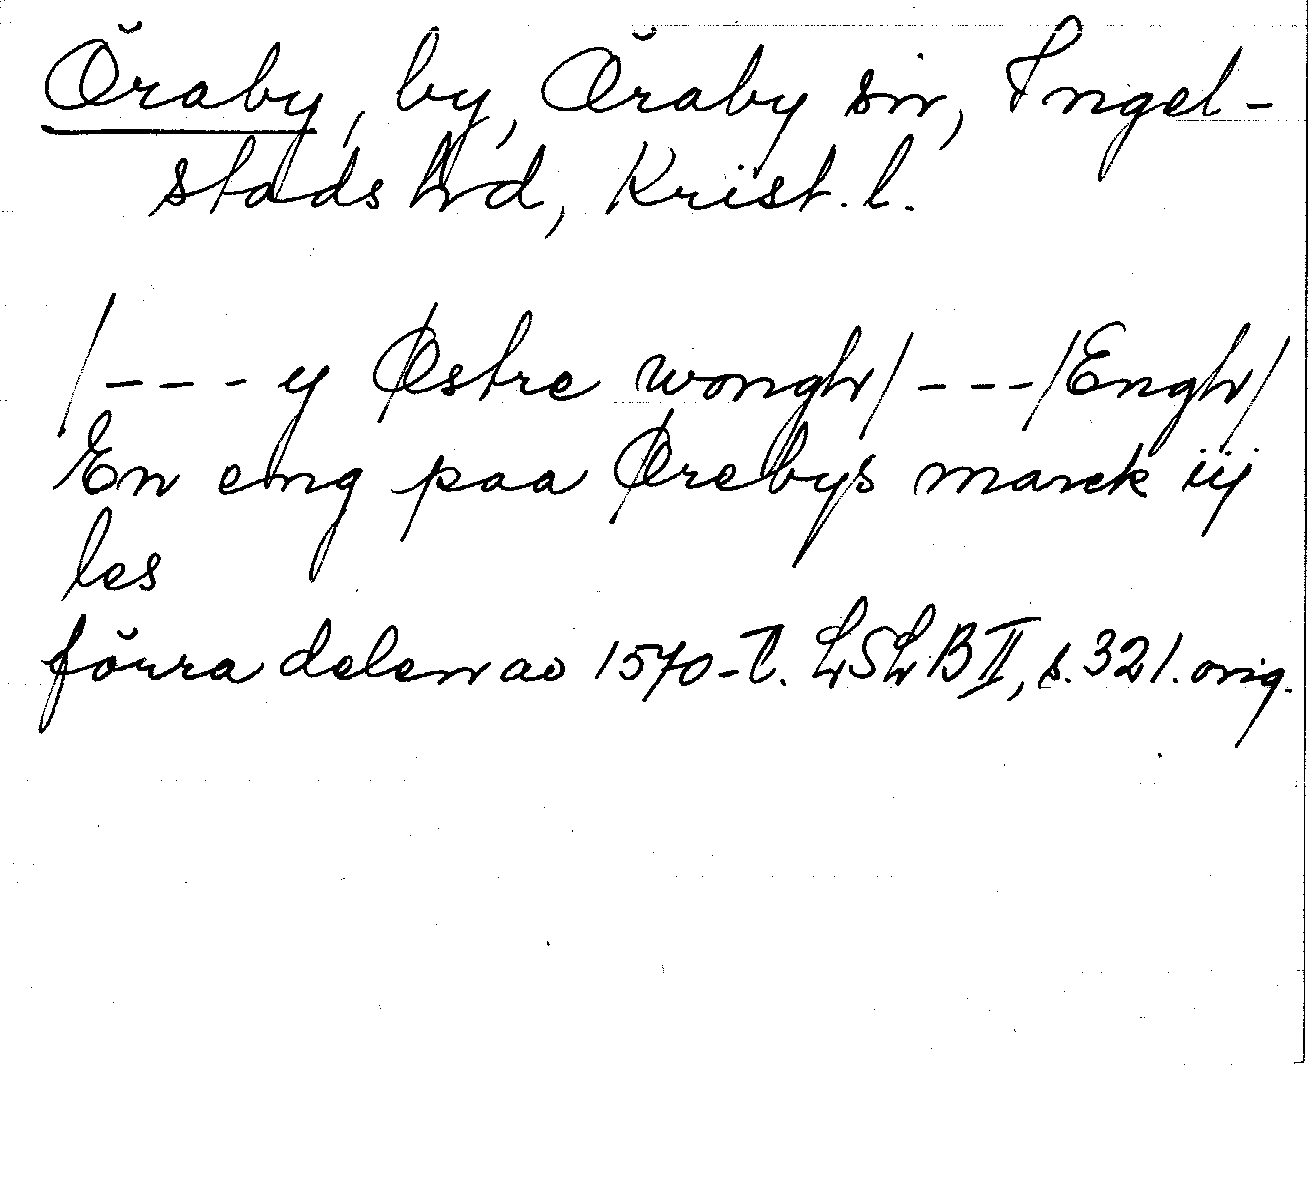 Öraby, by, Öraby sn, Ingel-
stads hrd, Krist. l.
/--- y Østre wongh/ ---/Engh/
En eng paa Ørebys marck iij
les
förra delen av 1570-t. LSLB II, s. 321. orig.